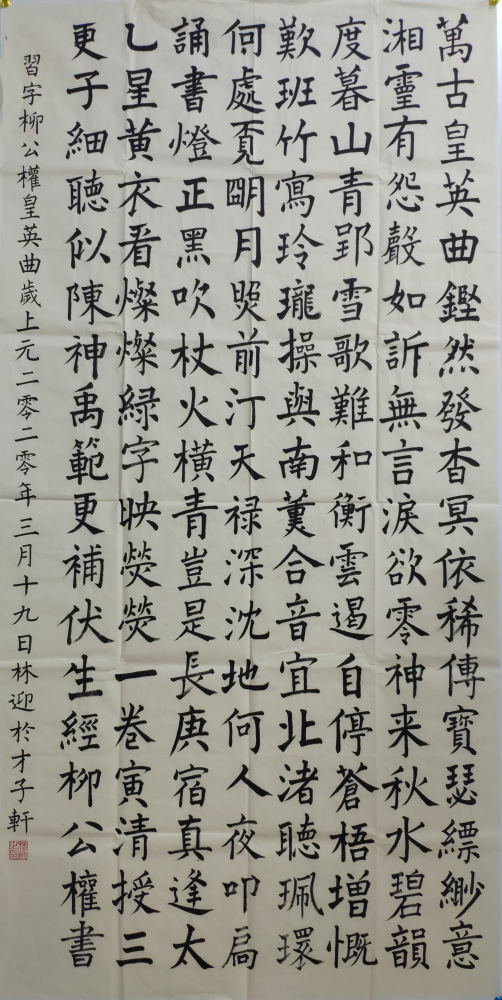 萬古皇英曲鏗然發杳冥依稀傳寶瑟縹緲意
湘靈有怨聲如訴無言淚欲零神来秋水碧韻
度暮山青郢雪歌難和衡雲遏自停蒼梧增慨
歎班竹寫玲瓏操與南薰合音宜北渚聽珮環
何處覔朙月照前汀天禄深沈地何人夜叩扃
誦書燈正黑吹杖火橫青豈是長庚宿真逢太
乙星黄衣看燦燦緑字映熒熒一卷寅清授三
更子細聽似陳神禹範更補伏生經柳公權書
習字柳公權皇英曲歲上元二零二零年三月十九日林迎於才子軒